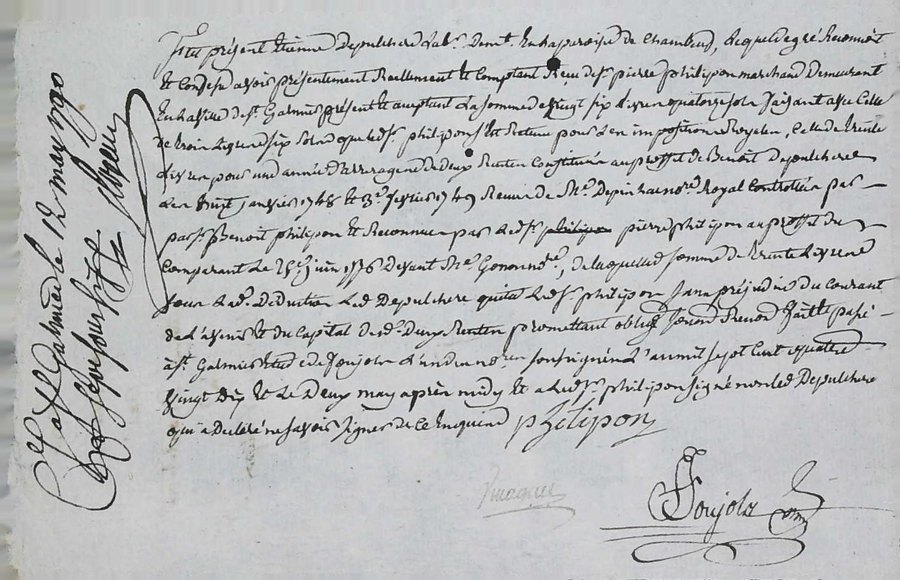 Fut présent Etienne Depulchere lab.r demt. En la paroisse de chambeuf, lequel de gré Reconnoit
Et Confesse avoir présentement Reellement Et Comptant Reçu de sr. pierre philipon marchand Demeurant
En la ville de st. Galmier présent et acceptant La somme de vingt six Livres quatorze sols faisant avec Celle
De trois Livres six sols que led. sr. philipon s'est Retenu pour les impositions Royales, Celle de trente
Livres pour une année D'arrerages de deux Rentes Constituées au proffit de Benoit Depulchere
Les huit janvier 1748 Et 3e. fevrier 1749 Recues de Me. Depinhac nore. Royal Controllées par
par sr. Benoit philipon Et Reconnues par led. sr. philipon pierre philipon au proffit du
Comparant Le juin 1776 devant Me. nore., de laquelle somme de trente Livres
sous lad. Déduction Led. Depulchere quitte led. sr. philipon sans préjudice du Courant
de l'avenir Et du Capital desd. Deux Rentes promettant oblig. Renon. fait Et passé
à st. Galmier Etude de Soujols L'un des nores. soussignés L'an mil sept Cent quatre
vingt dix Et Le Deux may après midy Et a led. sr. philipon signé non led. Depulchere
qui a Declaré ne savoir signer de Ce Enquis
philipon
Soujols
a st Galmier le 12 may 1790